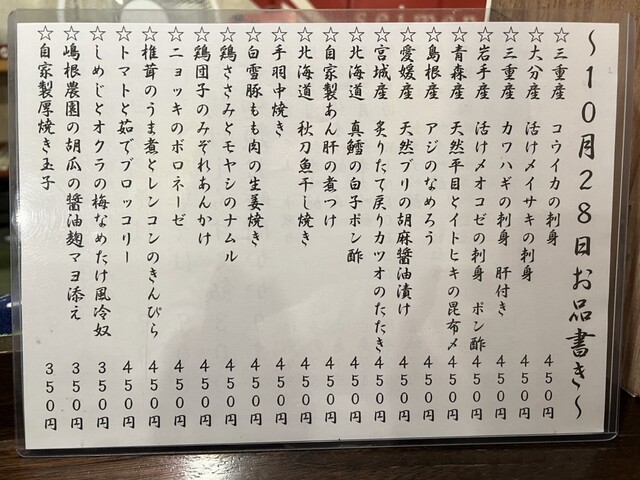 ～１０月２８日お品書き～
☆三重産　コウイカの刺身　４５０円
☆大分産　活けメイサキの刺身　４５０円
☆三重産　カワハギの刺身　肝付き　４５０円
☆岩手産　活けメオコゼの刺身　ポン酢　４５０円
☆青森産　天然平目とイトヒキの昆布〆　４５０円
☆島根産　アジのなめろう　４５０円
☆愛媛産　天然ブリの胡麻醤油漬け　４５０円
☆宮城産　炙りたて戻りカツオのたたき　４５０円
☆北海道　真鱈の白子ポン酢　４５０円
☆自家製あん肝の煮つけ　４５０円
☆北海道　秋刀魚干し焼き　４５０円
☆手羽中焼き　４５０円
☆白雪豚もも肉の生姜焼き　４５０円
☆鶏ささみとモヤシのナムル　４５０円
☆鶏団子のみぞれあんかけ　４５０円
☆ニョッキのボロネーゼ　４５０円
☆椎茸のうま煮とレンコンのきんぴら　４５０円
☆トマトと茹でブロッコリー　４５０円
☆しめじとオクラの梅なめたけ風冷奴　３５０円
☆嶋根農園の胡瓜の醤油麹マヨ添え　３５０円
☆自家製厚焼き玉子　３５０円